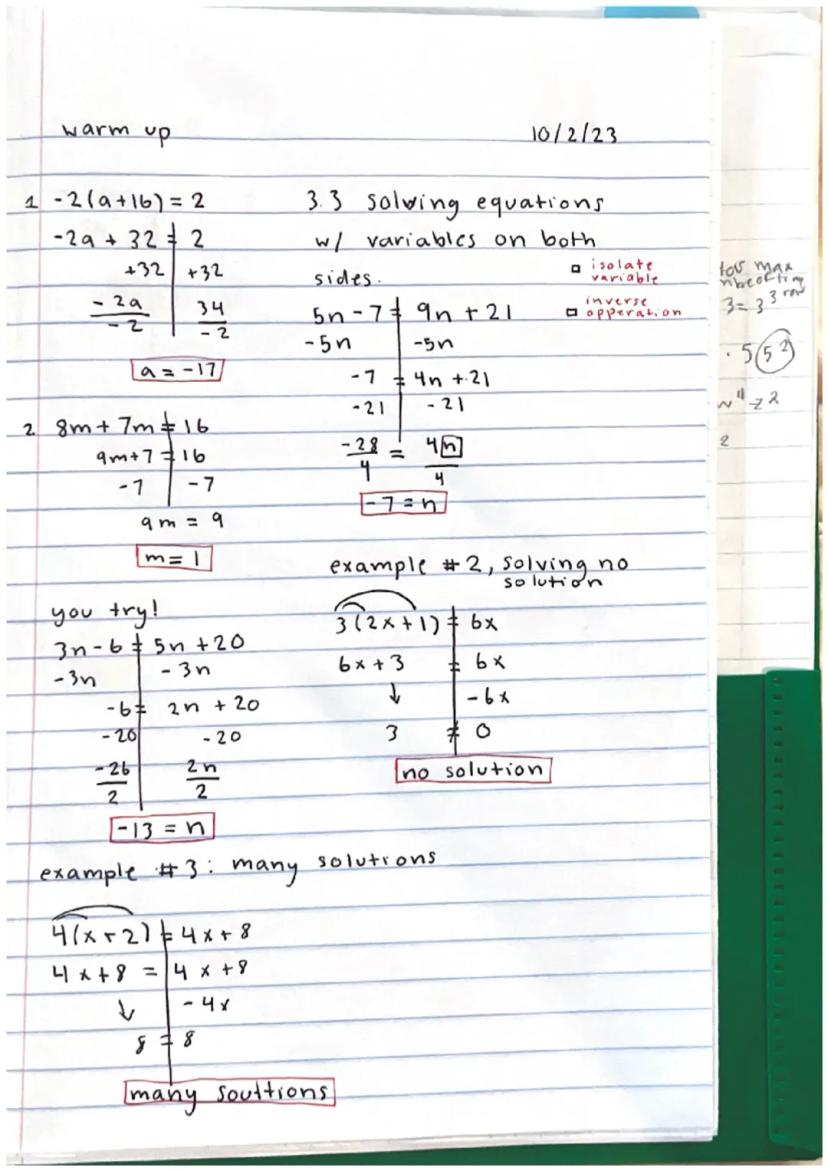 warm up
10/2/23
1 -2(a+16) = 2
-2a + 32 = 2
+32 +32
-2a/-2 34/-2
a = -17
2 8m + 7m = 16
9m+7 = 16
-7 -7
9m = 9
m = 1
you try!
3n - 6 = 5n + 20
-3n - 3n
-6 = 2n + 20
-20 -20
-26/2 2n/2
-13 = n
3.3 solving equations
w/ variables on both
sides.
□ isolate
variable
□ inverse
opperation
5n - 7 = 9n + 21
-5n -5n
-7 = 4n + 21
-21 - 21
-28/4 = 4n/4
-7 = n
example #2, solving no
solution
3(2x+1) = 6x
6x+3 = 6x
↓ -6x
3 ≠ 0
no solution
example #3: many solutions
4(x+2) = 4x+8
4x+8 = 4x+8
↓ - 4x
8 = 8
many souttions
max
3 = 3³ row
· 5 5²
2